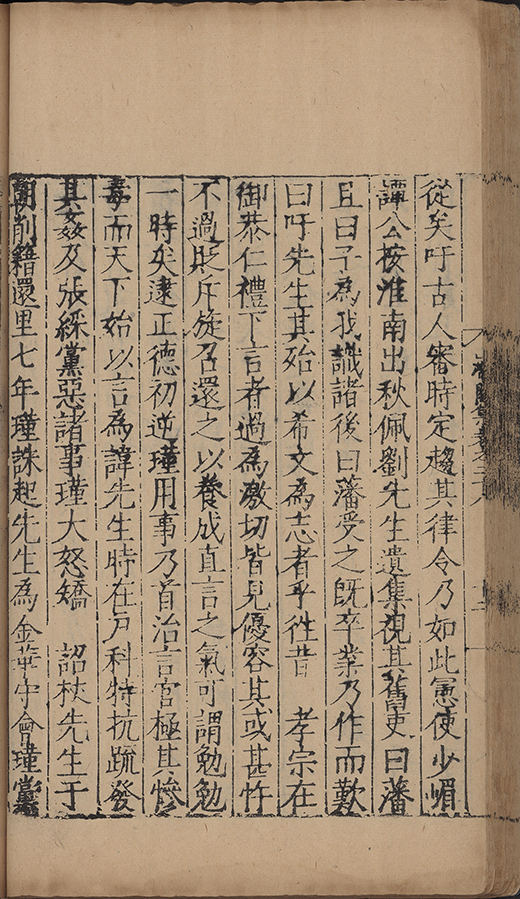 從矣吁古人審時定趨其律令乃如此憲使少嵋
譚公按淮南出秋佩劉先生遺集視其舊吏曰藩
且曰子為我識諸後曰藩受之既卒業乃作而歎
曰吁先生其殆以希文為志者乎徃昔 孝宗在
御恭仁禮下言者過為激切皆見優容其或甚忤
不過貶斥旋召還之以養成直言之氣可謂勉勉
一時矣逮正德初逆瑾用事乃首治言官極其慘
毒而天下始以言為諱先生時在戸科特抗疏發
其姦及張綵黨惡諸事瑾大怒矯 詔杖先生于
朝削籍還里七年瑾誅起先生為金華守會瑾黨